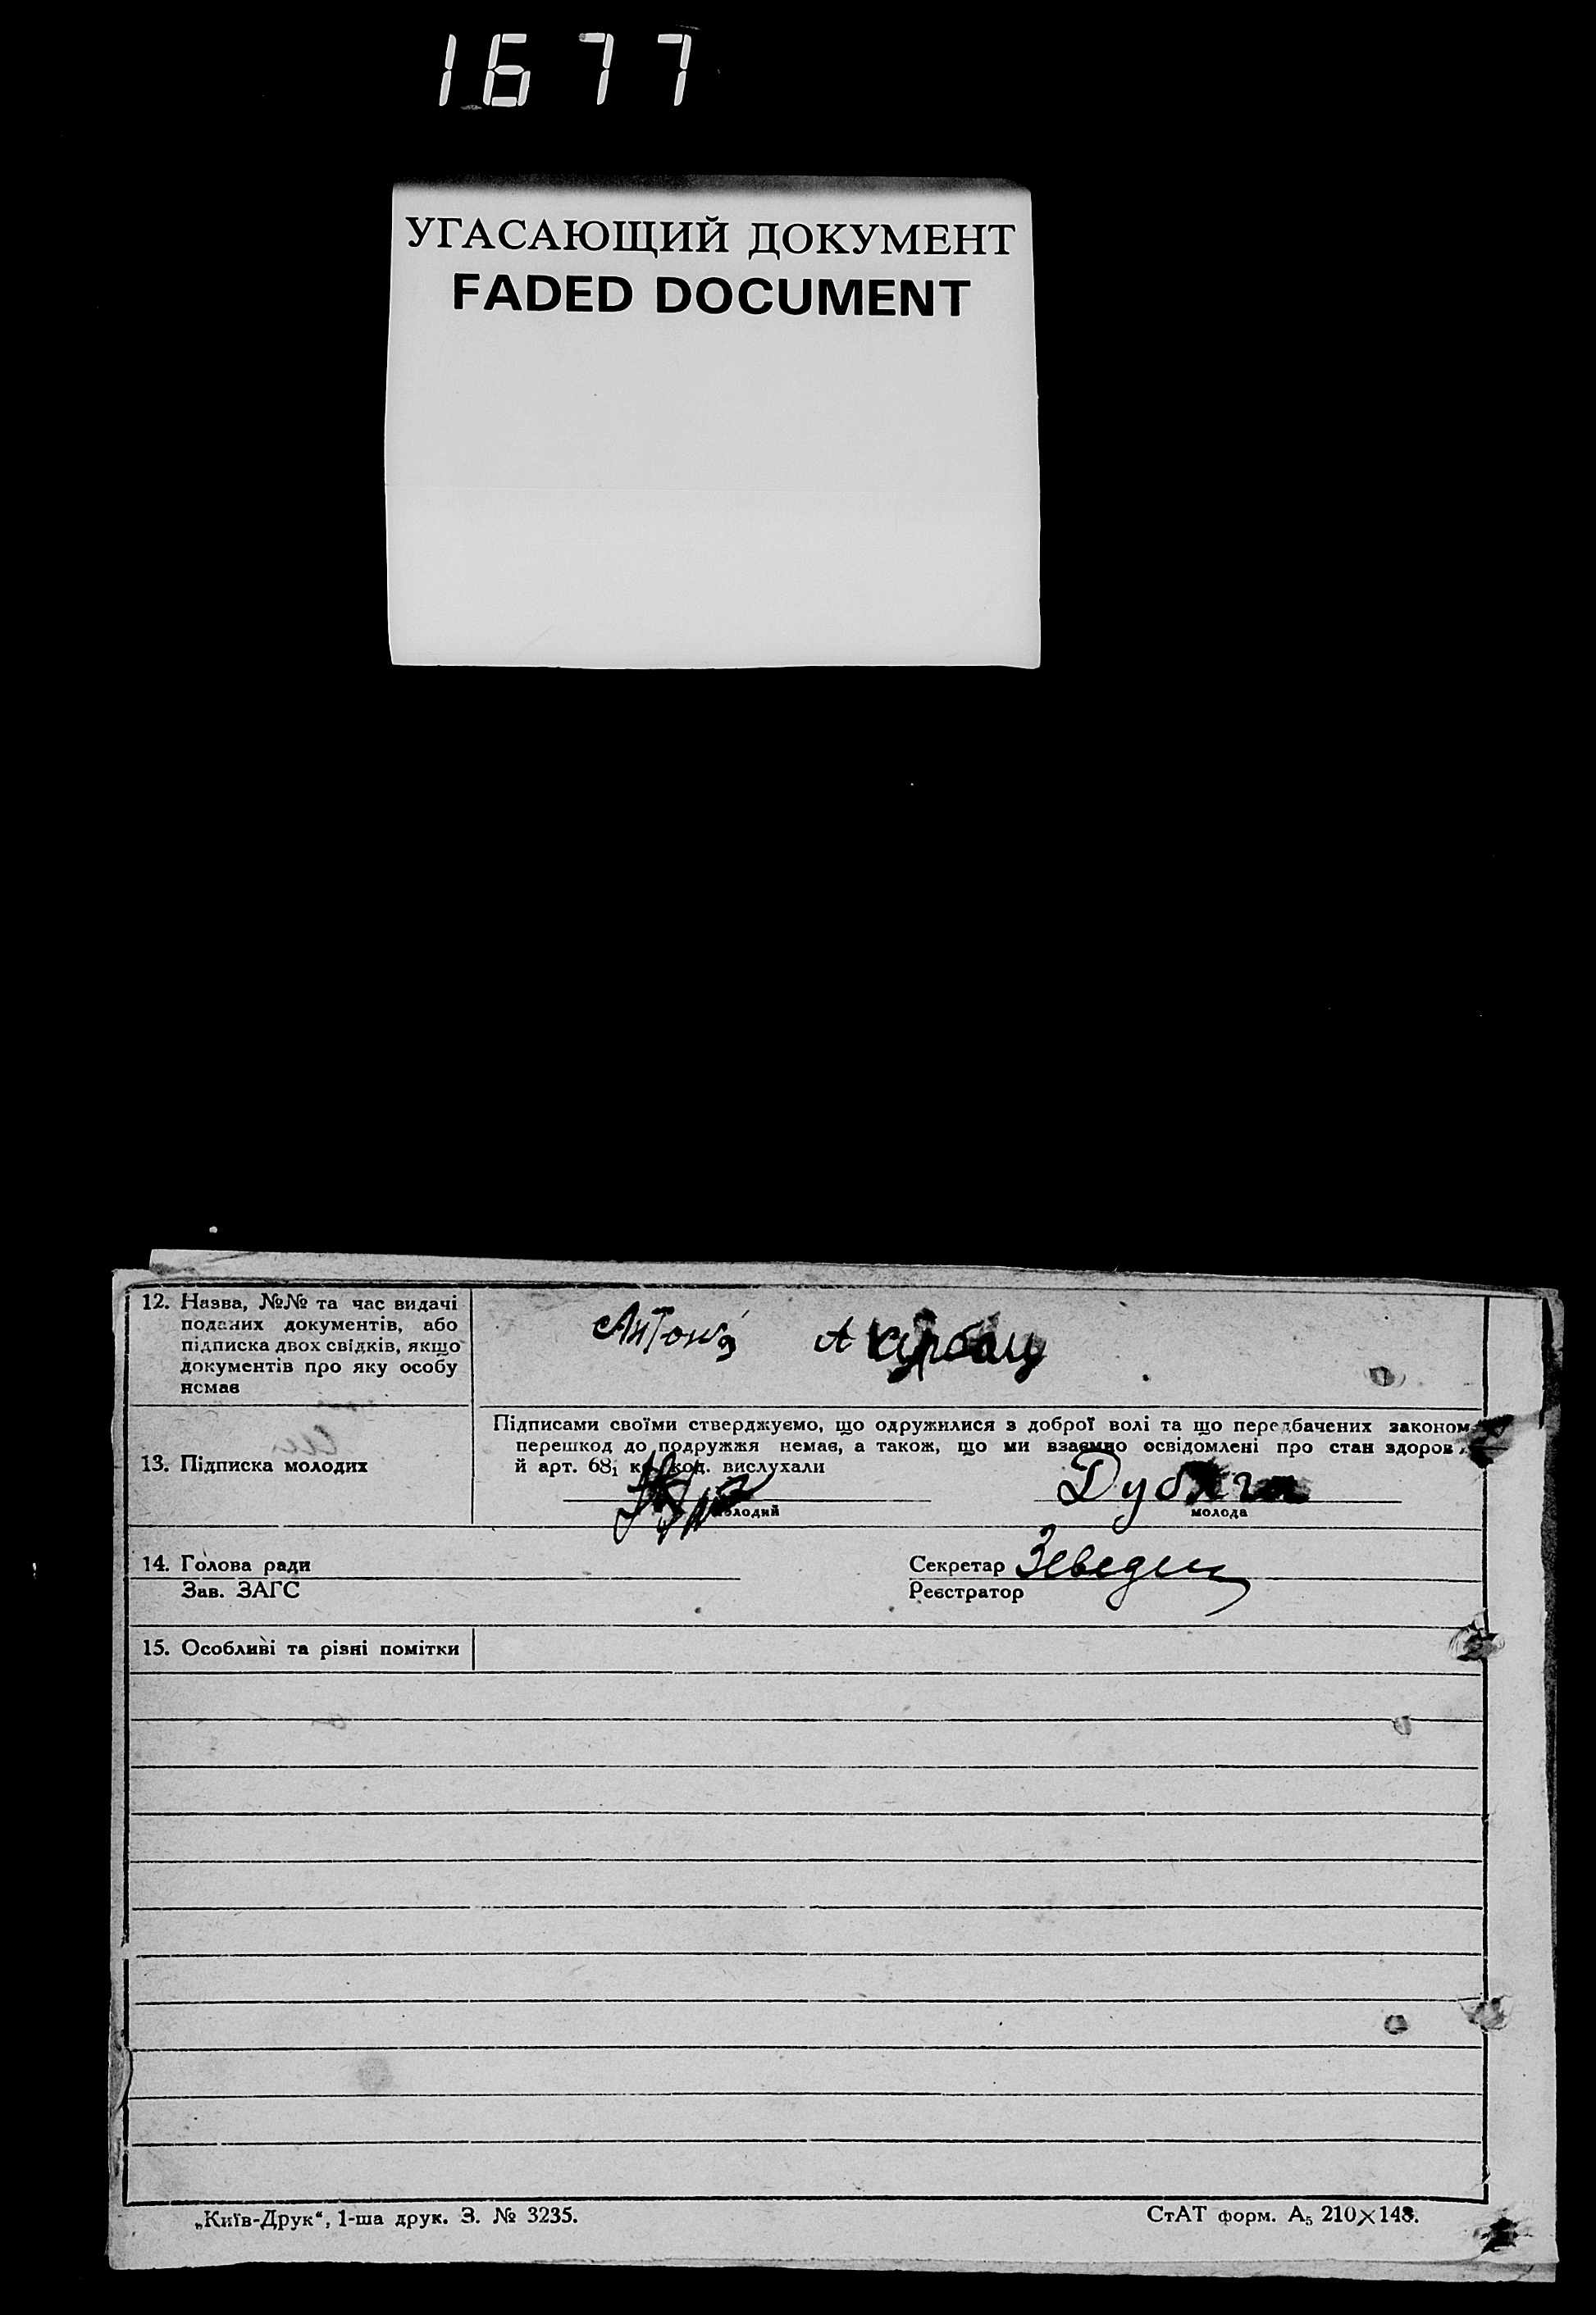 1677
УГАСАЮЩИЙ ДОКУМЕНТ
FADED DOCUMENT
12. Назва, №№ та час видачі
поданих документів, або
підписка двох свідків, якщо
документів про яку особу
немає
13. Підписка молодих
Підписами своїми стверджуємо, що одружилися з доброї волі та що передбачених законом
перешкод до подружжя немає, а також, що ми взаємно освідомлені про стан здоров
й арт. 68₁ код. вислухали
молодий
Дубяга
молода
14. Голова ради
Секретар
Зав. ЗАГС
Реєстратор
15. Особливі та різні помітки
„Київ-Друк“, 1-ша друк. З. № 3235.
СтАТ форм. А₅ 210×148.